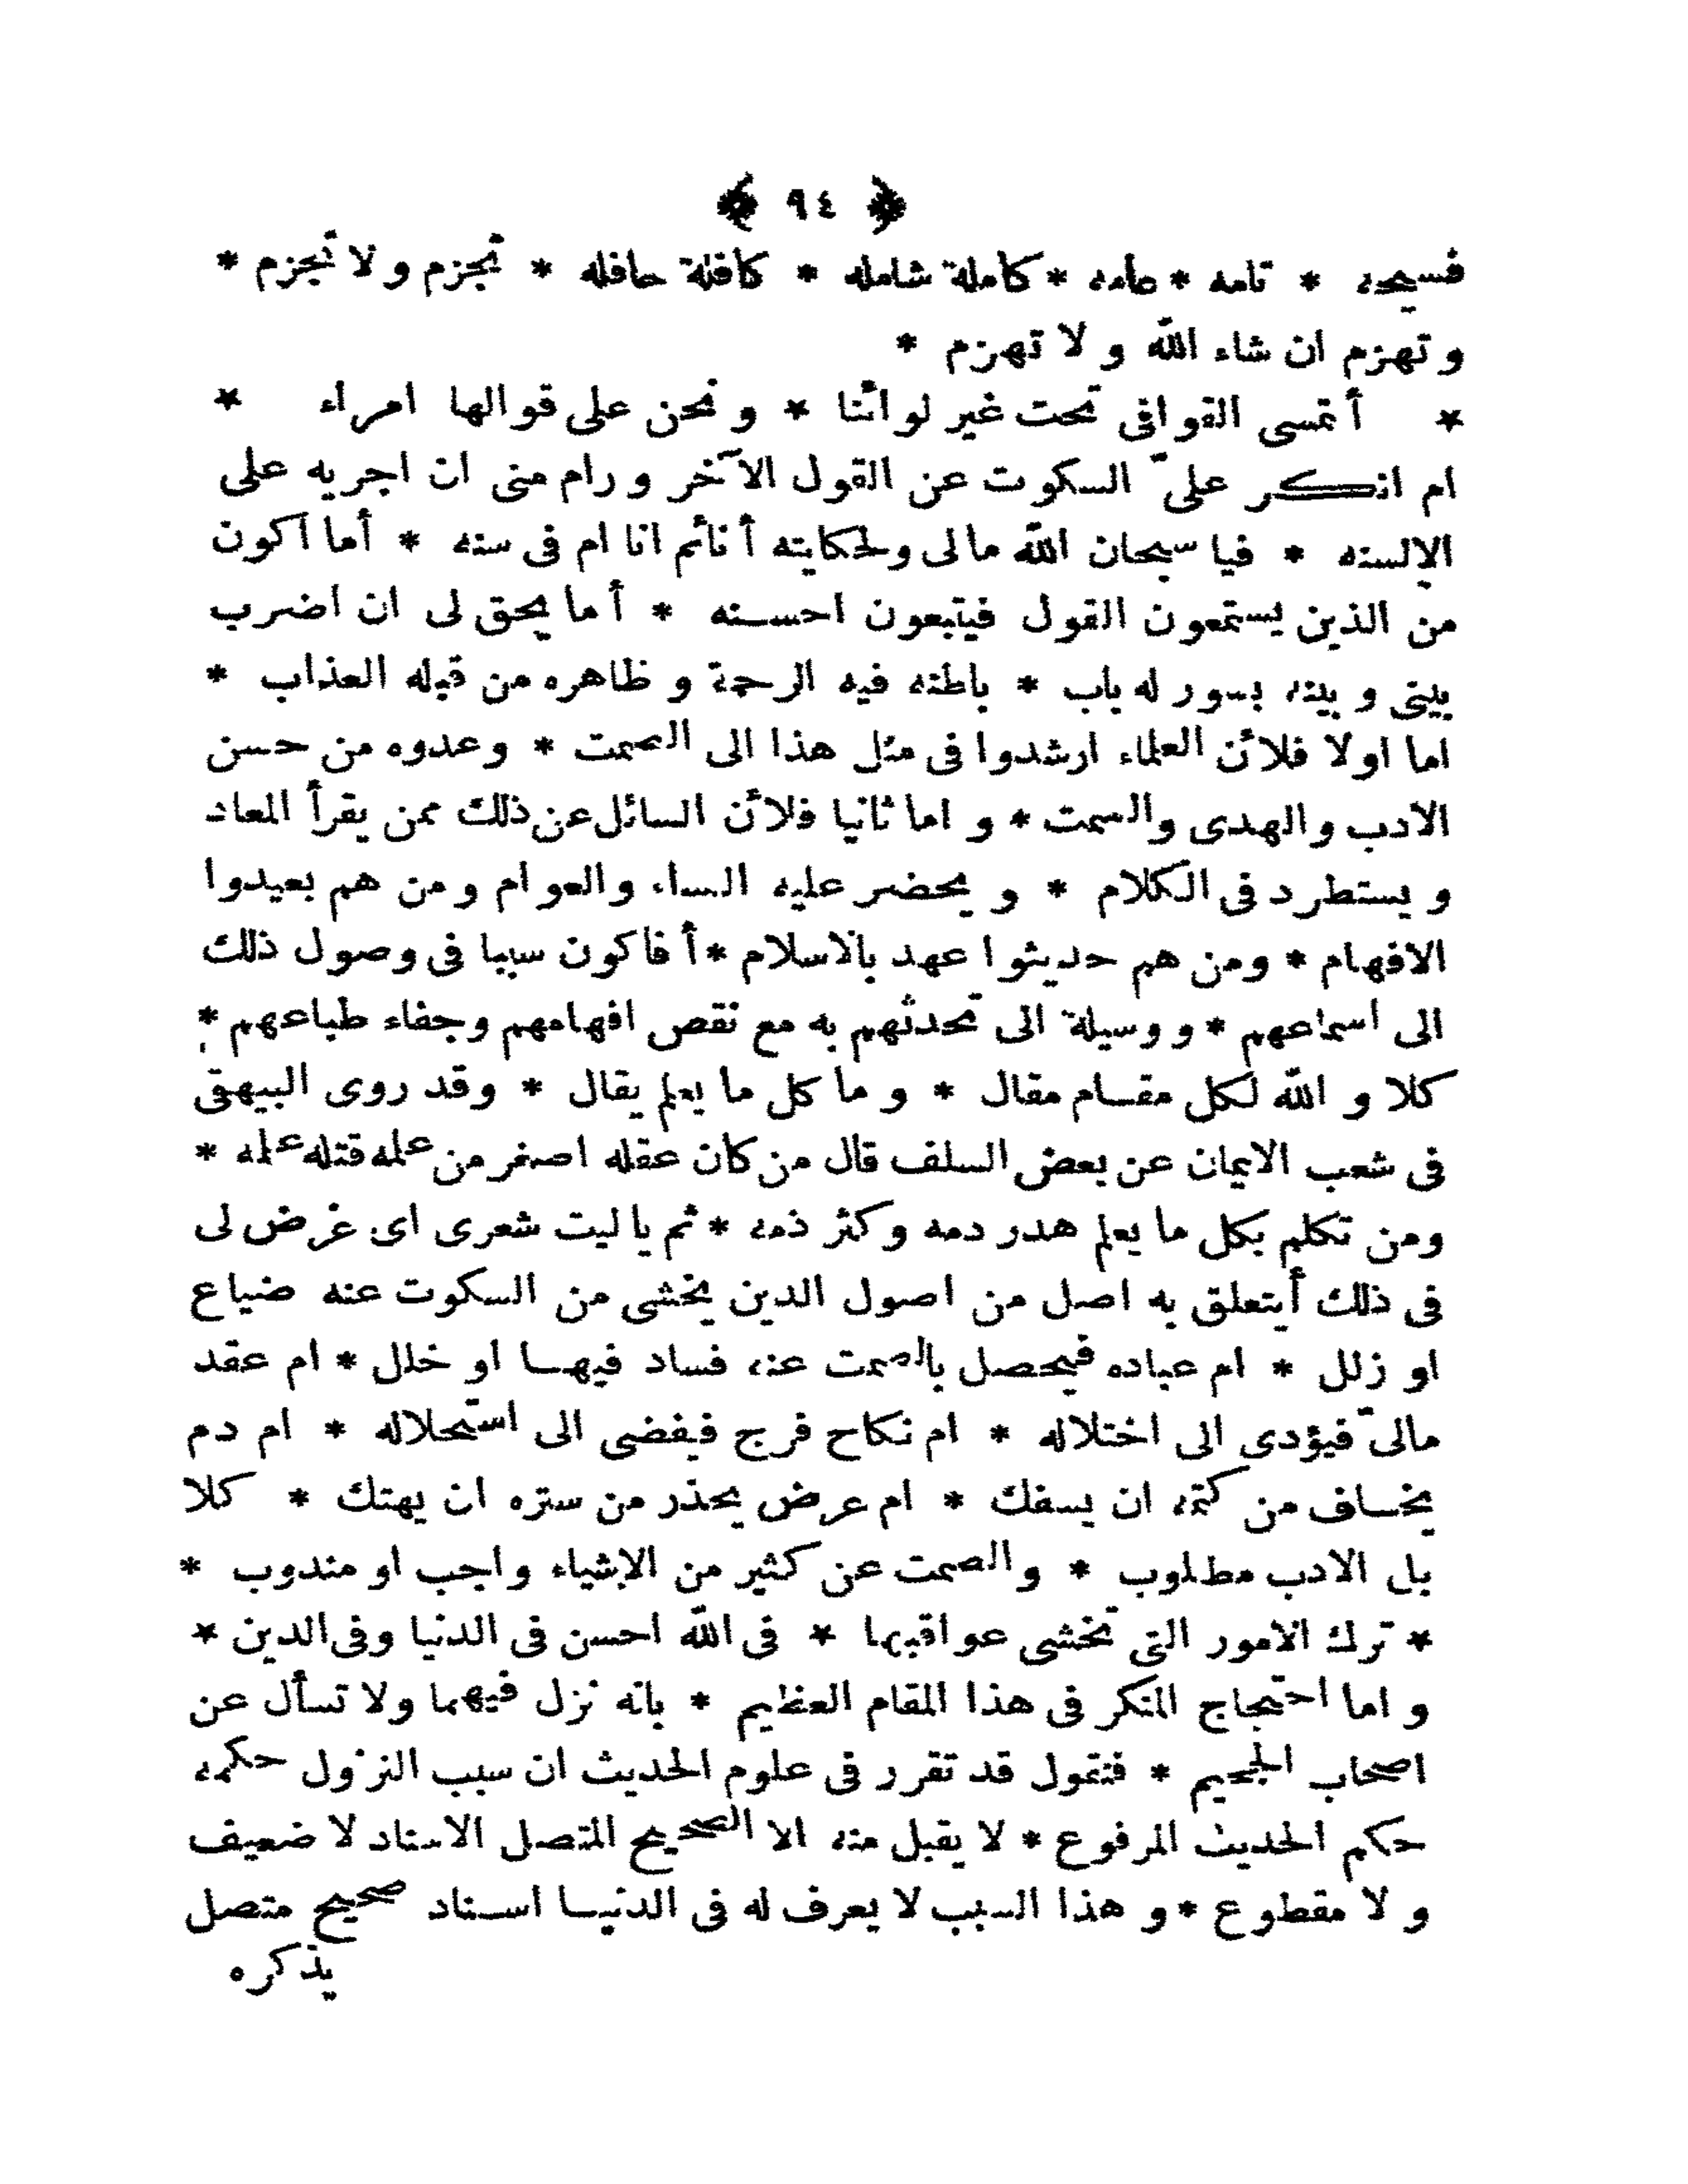 ﴿ ٩٤ ﴾
فسيحه * تامه * عامه * كاملة شامله * كافلة حافله * تجزم ولا تجزم *
و تهزم ان شاء الله و لا تهزم *
* أتمسى القوافى تحت غير لوائنا * و نحن على قوالها امراء *
ام انكر علىّ السكوت عن القول الآخر و رام منى ان اجريه على
الالسنه * فيا سبحان الله مالى ولحكايته أ نائم انا ام فى سنه * أما اكون
من الذين يستمعون القول فيتبعون احسنه * أ ما يحق لى ان اضرب
بينى و بينه بسور له باب * باطنه فيه الرحمة و ظاهره من قبله العذاب *
اما اولا فلأن العلماء ارشدوا فى مثل هذا الى الصمت * وعدوه من حسن
الادب والهدى والسمت * و اما ثانيا فلأن السائل عن ذلك ممن يقرأ المعاد
و يستطرد فى الكلام * و يحضر عليه النساء والعوام ومن هم بعيدوا
الافهام * ومن هم حديثوا عهد بالاسلام * أ فاكون سببا فى وصول ذلك
الى اسماعهم * و وسيلة الى تحدثهم به مع نقص افهامهم وجفاء طباعهم *
كلا و الله لكل مقام مقال * و ما كل ما يعلم يقال * وقد روى البيهقى
فى شعب الايمان عن بعض السلف قال من كان عقله اصغر من علمه قتله علمه *
ومن تكلم بكل ما يعلم هدر دمه وكثر ذمه * ثم يا ليت شعرى اى غرض لى
فى ذلك أيتعلق به اصل من اصول الدين يخشى من السكوت عنه ضياع
او زلل * ام عباده فيحصل بالصمت عنه فساد فيها او خلل * ام عقد
مالىّ فيؤدى الى اختلاله * ام نكاح فرج فيفضى الى استحلاله * ام دم
يخاف من كتمه ان يسفك * ام عرض يحذر من ستره ان يهتك * كلا
بل الادب مطلوب * والصمت عن كثير من الاشياء واجب او مندوب *
* ترك الامور التى تخشى عواقبها * فى الله احسن فى الدنيا وفى الدين *
و اما احتجاج المنكر فى هذا المقام العظيم * بانه نزل فيهما ولا تسأل عن
اصحاب الجحيم * فنقول قد تقرر فى علوم الحديث ان سبب النزول حكمه
حكم الحديث المرفوع * لا يقبل منه الا الصحيح المتصل الاسناد لا ضعيف
و لا مقطوع * و هذا السبب لا يعرف له فى الدنيا اسناد صحيح متصل
يذكره